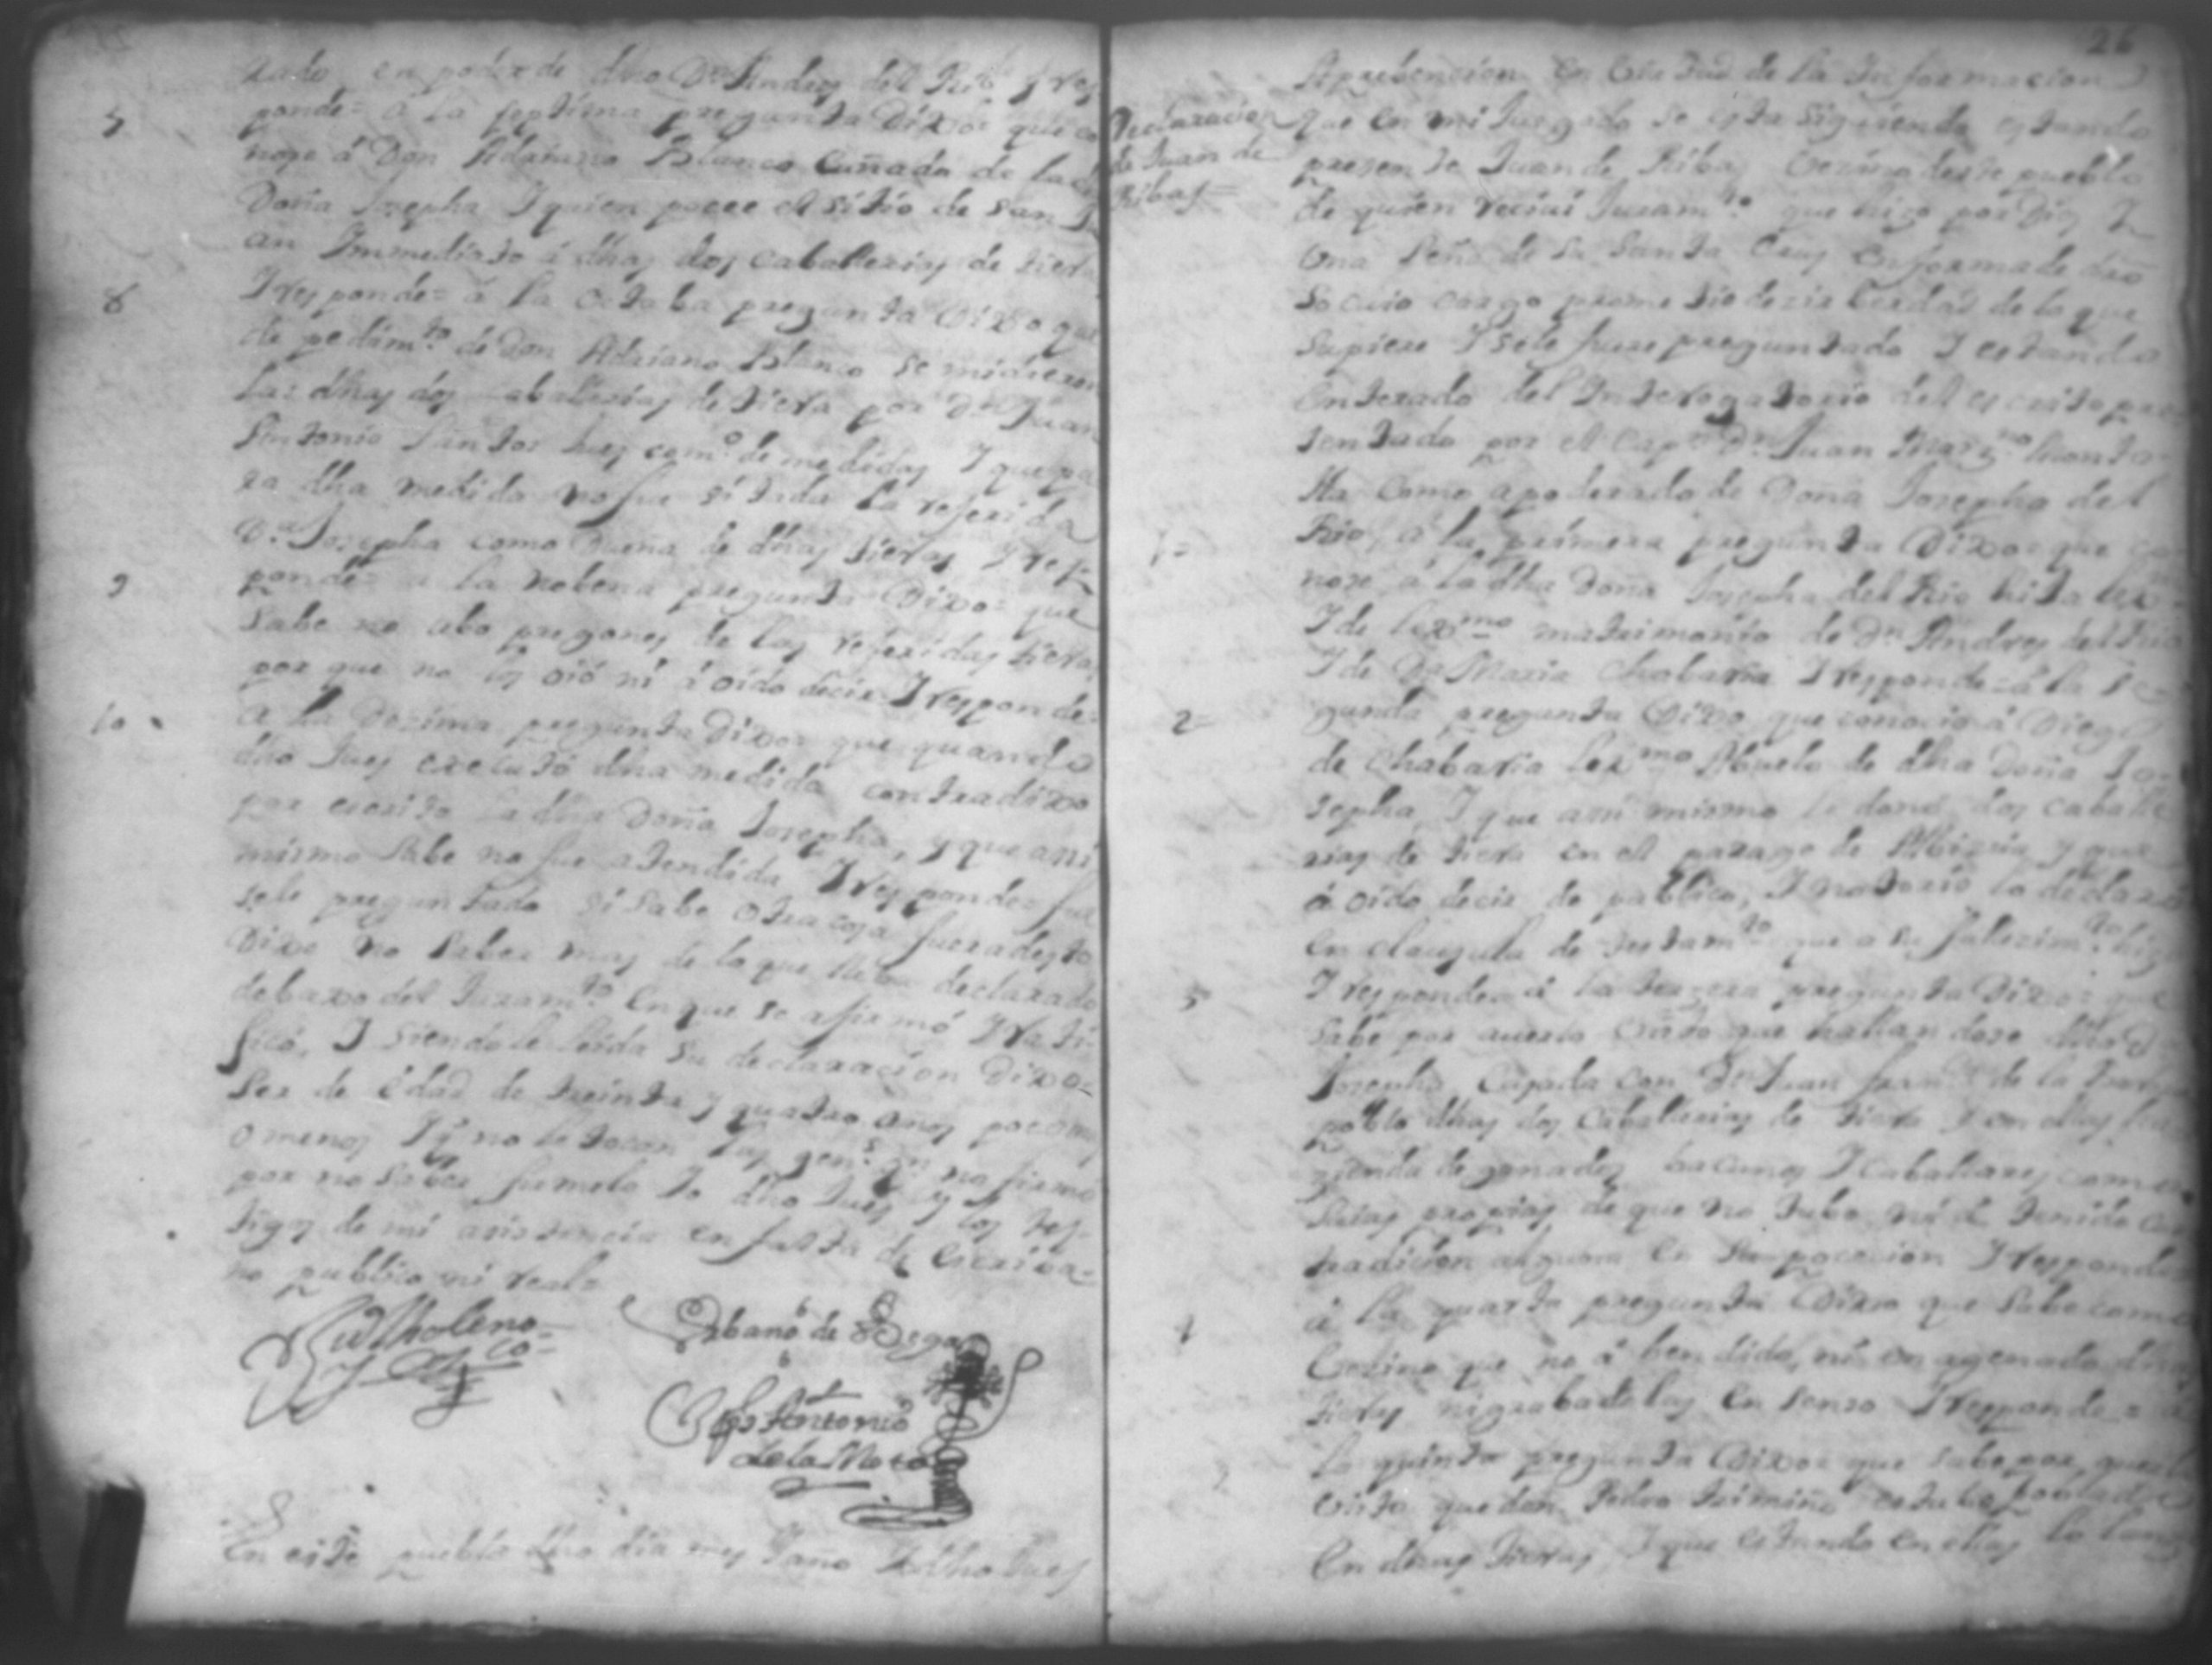 zado en poder de dho Dn Andres del Rio y res
7 ponde= a la septima pregunta Dixo= que co
nose á Don Adriano Blanco Cuñado de la
Doña Josepha Y quien posee el sitio de San
an Ynmediato á dhas dos caballerias de tierra
8 Y responde= á la octaba pregunta Dixo que
de pedimto de Don Adriano Blanco se midieron
las dhas dos caballerias de tierra por Dn Juan
Antonio Santos Jues como de medidas Y que pa
ra dha medida no fue sitada la referida
Da Josepha como Dueña de dhas tierras Y res
9 ponde= a la nobena pregunta Dixo= que
Sabe no ubo pregones de las referidas tierras
por que no los oió ni á oido decir Y responde=
10 A la Dezima pregunta Dixo= que quando
dho Jues executó dha medida contradixo
por escrito la dha Doña Josepha, y que assi
mismo Sabe no fue atendida Y responde= fue
sele preguntado si Sabe otra cosa fuera desto
Dixo no Saber mas de lo que lleba declarado
debaxo del Juramto en que se afirmó Y rati
ficó, Y siendole leida su declaracion Dixo=
Ser de edad de treinta y quatro años poco mas
o menos Y q no le tocan las gens no firmó
por no saber firmelo Yo dho Jues y los tes
tigos de mi asistencia en falta de Escriba=
no publico ni real=
Urbano de Vega
Antonio
de la Mota
En este pueblo dho dia mes Y año Yo dho Jues
26
Declaracion
de Juan de
Ribas=
Aprebencion en birtud de la Informacion
que en mi Juzgado se esta siguiendo estando
presente Juan de Ribas bezino deste pueblo
de quien reciui Juramto que hizo por Dios Y
una Señal de la Santa Cruz en forma de dro
so cuio cargo prometio dezir berdad de lo que
Supiere Y se le fuere preguntado Y estando
enterado del Interrogatorio del escrito pre
sentado por el Capn Dn Juan Marzno Monta
lla como apoderado de Doña Josepha del
1= Rio, á la primera pregunta Dixo= que co
nose á la dha Doña Josepha del Rio hija lexa
Y de lexmo matrimonio de Dn Andres del Rio
Y de Da Maria Chabaria Y responde= á la se
2= gunda pregunta Dixo que conocio á Diego
de Chabaria lexmo Abuelo de dha Doña Jo
sepha, Y que assi mismo le donó dos caballe
rias de tierra en el parage de y que
á oido decir de publico, Y notorio lo declaró
en clausula de testamto que a su fallezimto hizo
3 Y responde= á la terzera pregunta Dixo= que
Sabe por auerlo visto que hallandose dha Da
Josepha Casada con Dn Juan Franco de la
pobló dhas dos Caballerias de tierra Y en ellas ha
zienda de ganados bacunos Y Caballares como
suias propias de que no tubo ni á tenido con
tradicion alguna en su pocecion Y responde
4 á la quarta pregunta Dixo que Sabe como
bezino que no á bendido, ni enagenado dhas
tierras ni grabadolas en senso Y responde= a
la quinta pregunta Dixo= que sabe por auerlo
visto que don Pedro estubo poblado
en dhas tierras, Y que estando en ellas lo